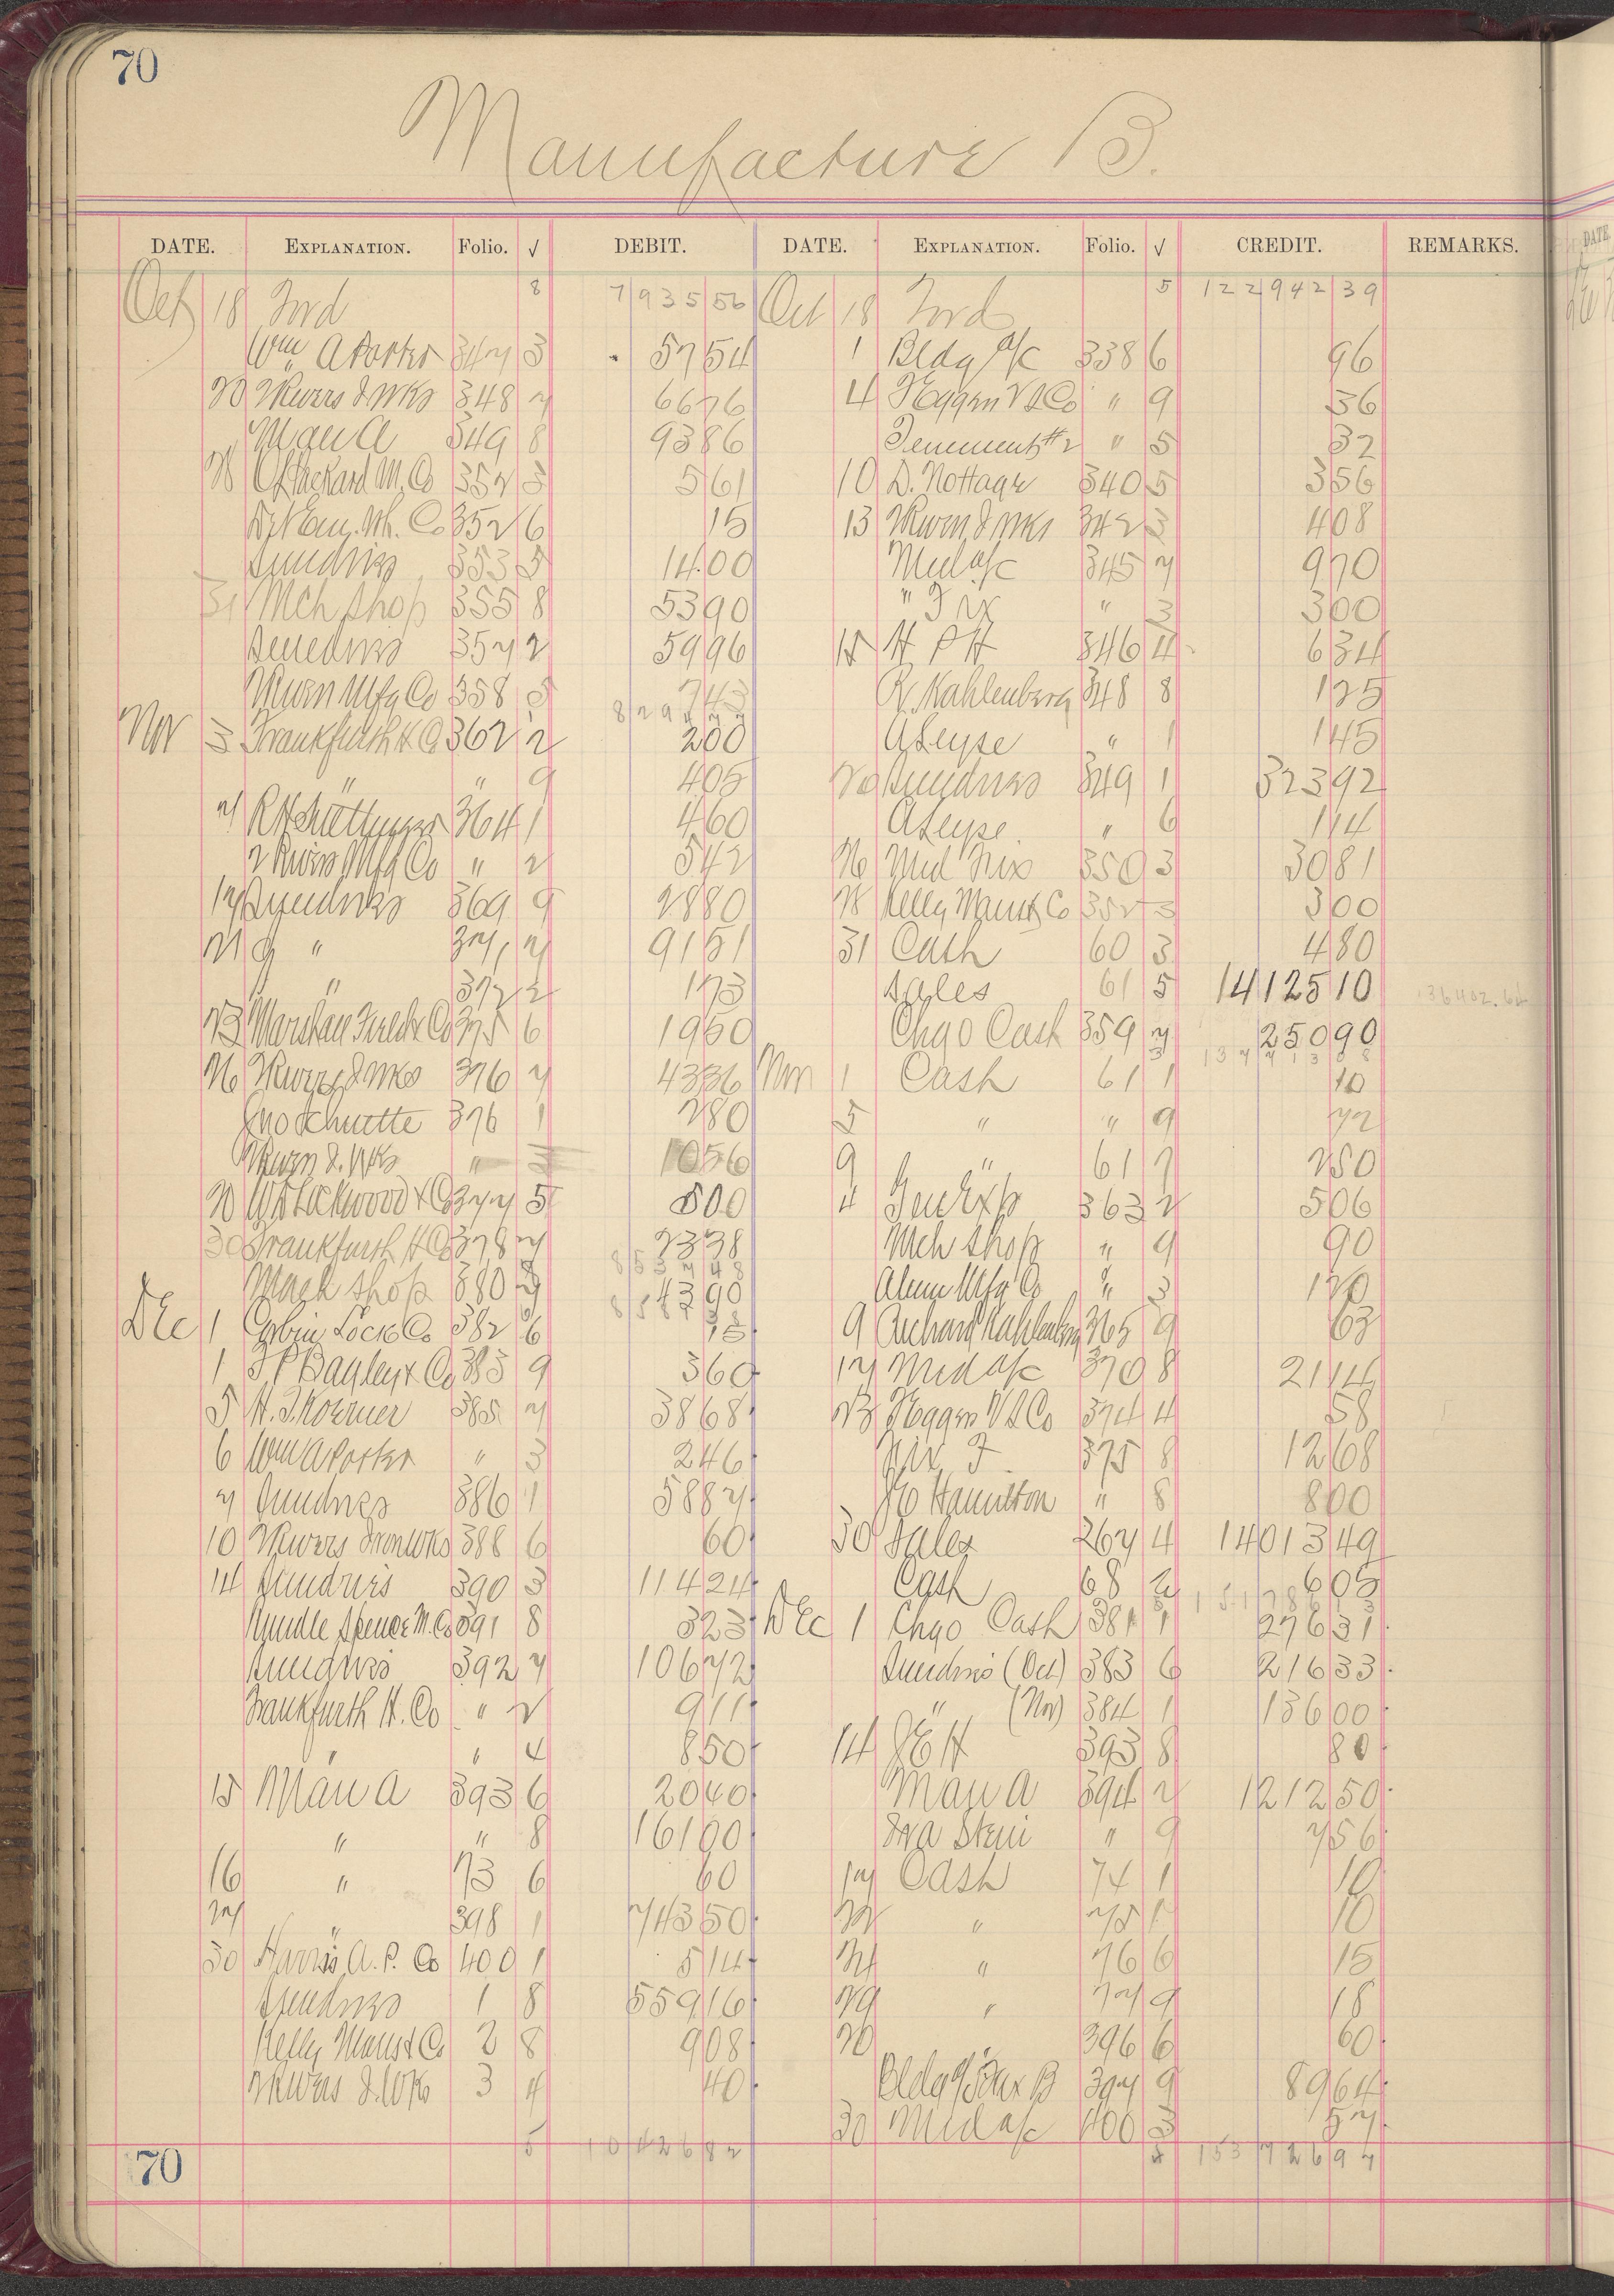 70
Manufacture B.
DATE. EXPLANATION. Folio. √ DEBIT. DATE. EXPLANATION. Folio. √ CREDIT. REMARKS.
Oct 18 Ford 8 7935 56 Oct 18 Ford 5 122942 39
Wm A Porter 347 3 57 54 1 Bldg a/c 338 6 96
20 2Rivers I Wks 348 7 66 76 4 J Eggen V S Co " 9 36
Man A 349 8 93 86 Tenement #2 " 5 32
28 Packard M. Co 352 3 5 61 10 D. Nottage 340 5 3 56
Co 352 6 15 13 2Rivers I Wks 342 3 4 08
Sundries 353 5 14 00 Mid a/c 345 7 9 70
31 Mch Shop 355 8 53 90 " Fix " 3 3 00
Sundries 357 2 59 96 15 H P H 346 4 6 34
2Rivers Mfg Co 358 5 7 43 R. Kahlenberg 348 8 1 25
8294 77
Nov 3 Frankfurth H Co 362 2 2 00 A Leyse " 1 1 45
" " 9 4 05 20 Sundries 349 1 323 92
7 R H 364 1 4 60 A Leyse " 6 1 14
2 Rivers Mfg Co " 2 5 42 26 Mid Fix 350 3 30 81
17 Sundries 369 9 28 80 28 Kelly Maus & Co 352 3 3 00
21 " 371 7 91 51 31 Cash 60 3 4 80
" 372 2 1 73 Sales 61 5 14125 10 136402.64
23 Marshall Field & Co 375 6 19 50 Chgo Cash 359 7 250 90
26 2Rivers I Wks 376 7 43 36 Nov 1 Cash 61 1 10
Jno Schuette 376 1 2 80 5 " " 9 72
2Rivers I. Wks " 10 56 9 " 61 7 2 50
Lockwood & Co 377 5 5 00 4 Gen Exp 363 2 5 06
30 Frankfurth H Co 378 7 23 38 Mch Shop " 9 90
Mach Shop 380 43 90 Alum Mfg Co " 3 1 20
Dec 1 Corbin Lock Co 382 6 15 9 Richard Kahlenberg 365 9 63
1 F P Bagley & Co 383 9 3 60 17 Mid a/c 370 8 21 14
5 H. J. Koerner 385 7 38 68 23 J Eggen V S Co 374 4 58
6 Wm A Porter " 3 2 46 Fix F 375 8 12 68
7 Sundries 386 1 58 87 J E Hamilton " 8 8 00
10 2Rivers Iron Wks 388 6 60 30 Sales 267 4 14013 49
14 Sundries 390 3 114 24 Cash 68 2 6 05
Rundle Spence M. Co 391 8 3 23 Dec 1 Chgo Cash 381 1 276 31
Sundries 392 7 106 72 Sundries (Oct) 383 6 216 33
Frankfurth H. Co " 2 9 11 " (Nov) 384 1 136 00
" " 4 8 50 14 J E H 393 8 80
15 Man A 393 6 20 40 Man A 394 2 1212 50
" " 8 161 00 Ira Stein " 9 7 56
16 " 73 6 60 17 Cash 74 1 10
27 " 398 1 743 50 22 " 75 1 10
30 Harris A. P. Co 400 1 5 14 24 " 76 6 15
Sundries 1 8 559 16 29 " 77 9 18
Kelly Maus & Co 2 8 9 08 20 396 6 60
2Rivers I. Wks 3 4 40 Bldg B 397 9 89 64
30 Mid a/c 400 3 57
5 10426 82 153726 97
70